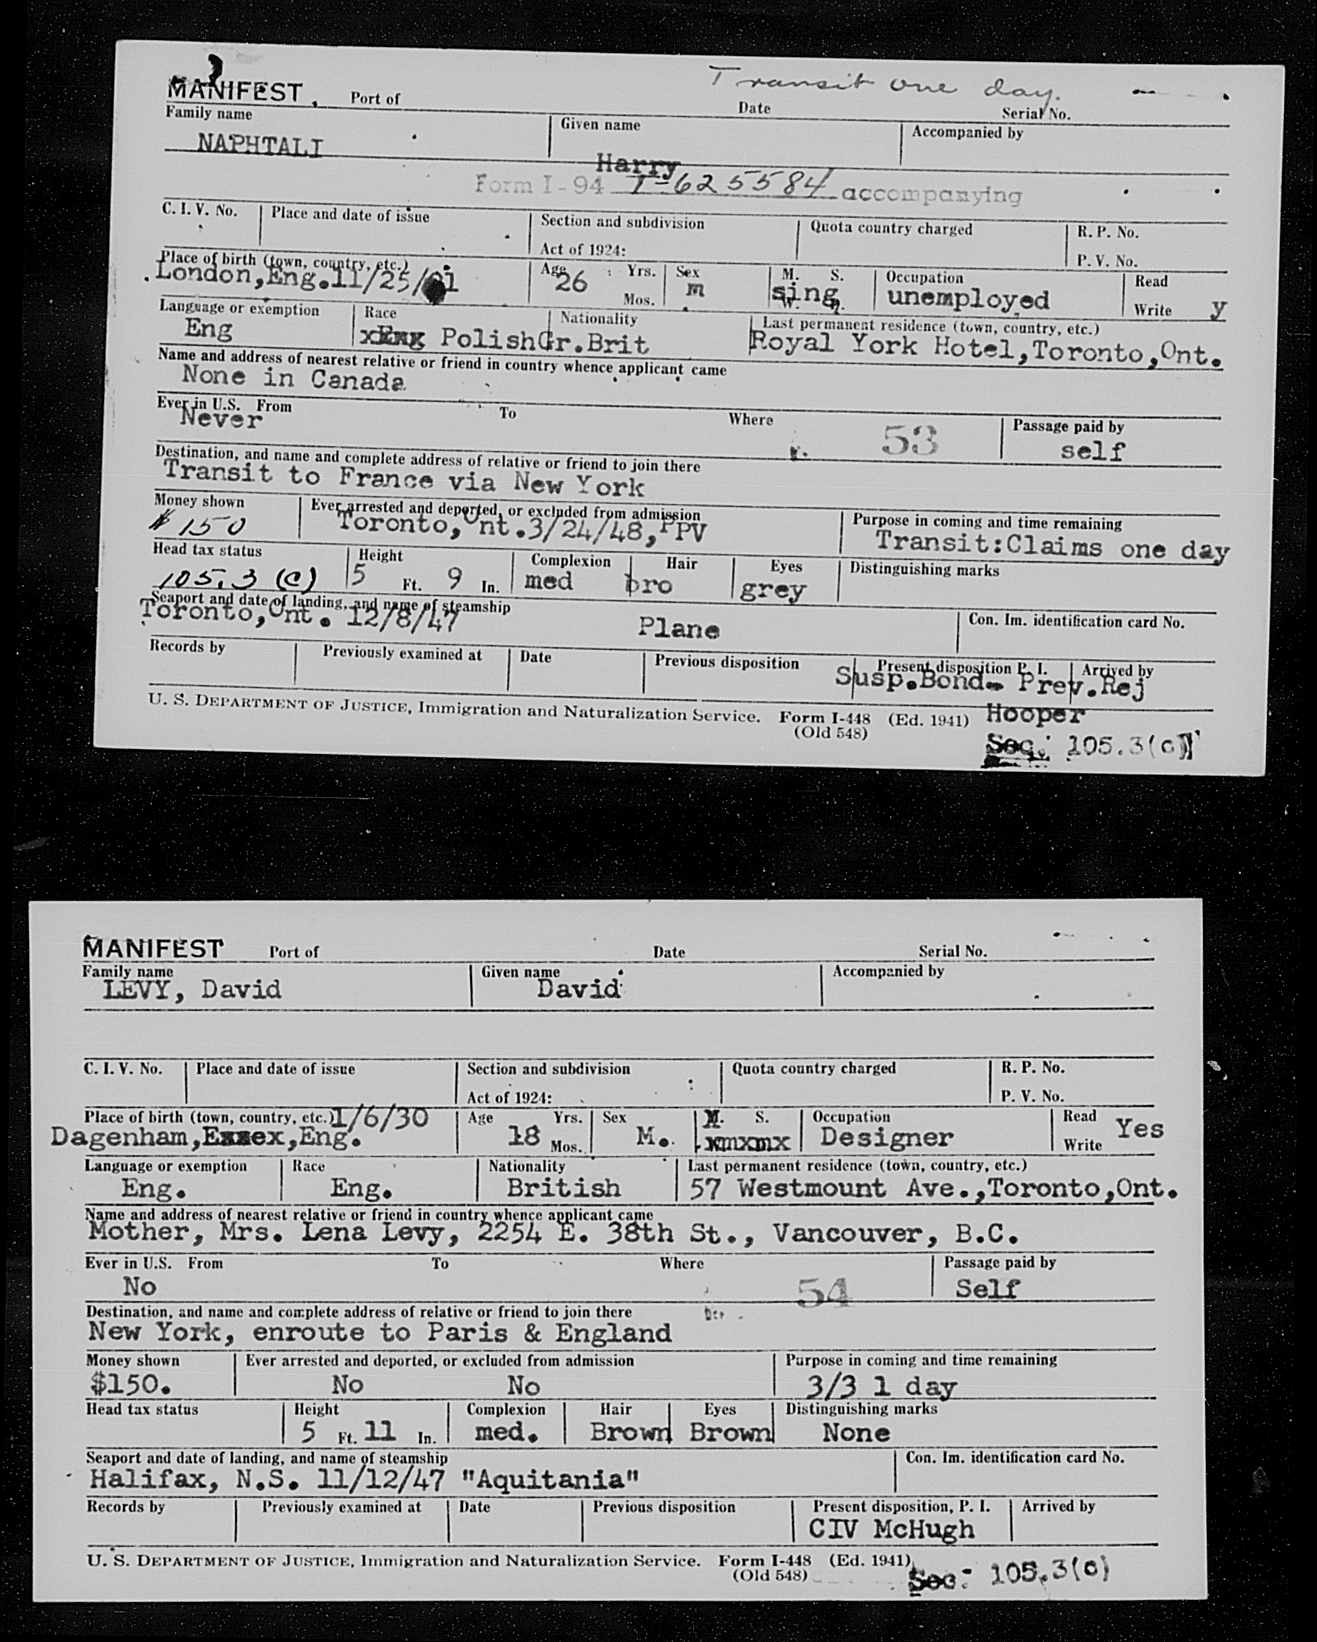 Transit one day.
MANIFEST Port of Date Serial No.
Family name Given name Accompanied by
NAPHTALI Harry
Form I-94 T-625584 accompanying
C. I. V. No. Place and date of issue Section and subdivision Quota country charged R. P. No.
Act of 1924: P. V. No.
Place of birth (town, country, etc.) Age Yrs. Sex M. S. Occupation Read
London,Eng.11/25/ 26 m sing. unemployed
Mos. W. Write y
Language or exemption Race Nationality Last permanent residence (town, country, etc.)
Eng Polish Gr.Brit Royal York Hotel,Toronto,Ont.
Name and address of nearest relative or friend in country whence applicant came
None in Canada
Ever in U.S. From To Where Passage paid by
Never 53 self
Destination, and name and complete address of relative or friend to join there
Transit to France via New York
Money shown Ever arrested and deported, or excluded from admission Purpose in coming and time remaining
$150 Toronto,Ont.3/24/48,PPV Transit:Claims one day
Head tax status Height Complexion Hair Eyes Distinguishing marks
105.3 (c) 5 Ft. 9 In. med bro grey
Seaport and date of landing, and name of steamship Con. Im. identification card No.
Toronto,Ont. 12/8/47 Plane
Records by Previously examined at Date Previous disposition Present disposition P. I. Arrived by
Susp.Bond- Prev.Rej
U. S. DEPARTMENT OF JUSTICE, Immigration and Naturalization Service. Form I-448 (Ed. 1941) Hooper
(Old 548) Sec. 105.3(c)
MANIFEST Port of Date Serial No.
Family name Given name Accompanied by
LEVY, David David
C. I. V. No. Place and date of issue Section and subdivision Quota country charged R. P. No.
Act of 1924: P. V. No.
Place of birth (town, country, etc.) 1/6/30 Age Yrs. Sex M. S. Occupation Read
Dagenham,Essex,Eng. 18 Mos. M. Designer Write Yes
Language or exemption Race Nationality Last permanent residence (town, country, etc.)
Eng. Eng. British 57 Westmount Ave.,Toronto,Ont.
Name and address of nearest relative or friend in country whence applicant came
Mother, Mrs. Lena Levy, 2254 E. 38th St., Vancouver, B.C.
Ever in U.S. From To Where Passage paid by
No 54 Self
Destination, and name and complete address of relative or friend to join there
New York, enroute to Paris & England
Money shown Ever arrested and deported, or excluded from admission Purpose in coming and time remaining
$150. No No 3/3 1 day
Head tax status Height Complexion Hair Eyes Distinguishing marks
5 Ft. 11 In. med. Brown Brown None
Seaport and date of landing, and name of steamship Con. Im. identification card No.
Halifax, N.S. 11/12/47 "Aquitania"
Records by Previously examined at Date Previous disposition Present disposition, P. I. Arrived by
CIV McHugh
U. S. DEPARTMENT OF JUSTICE, Immigration and Naturalization Service. Form I-448 (Ed. 1941)
(Old 548) Sec. 105.3(c)